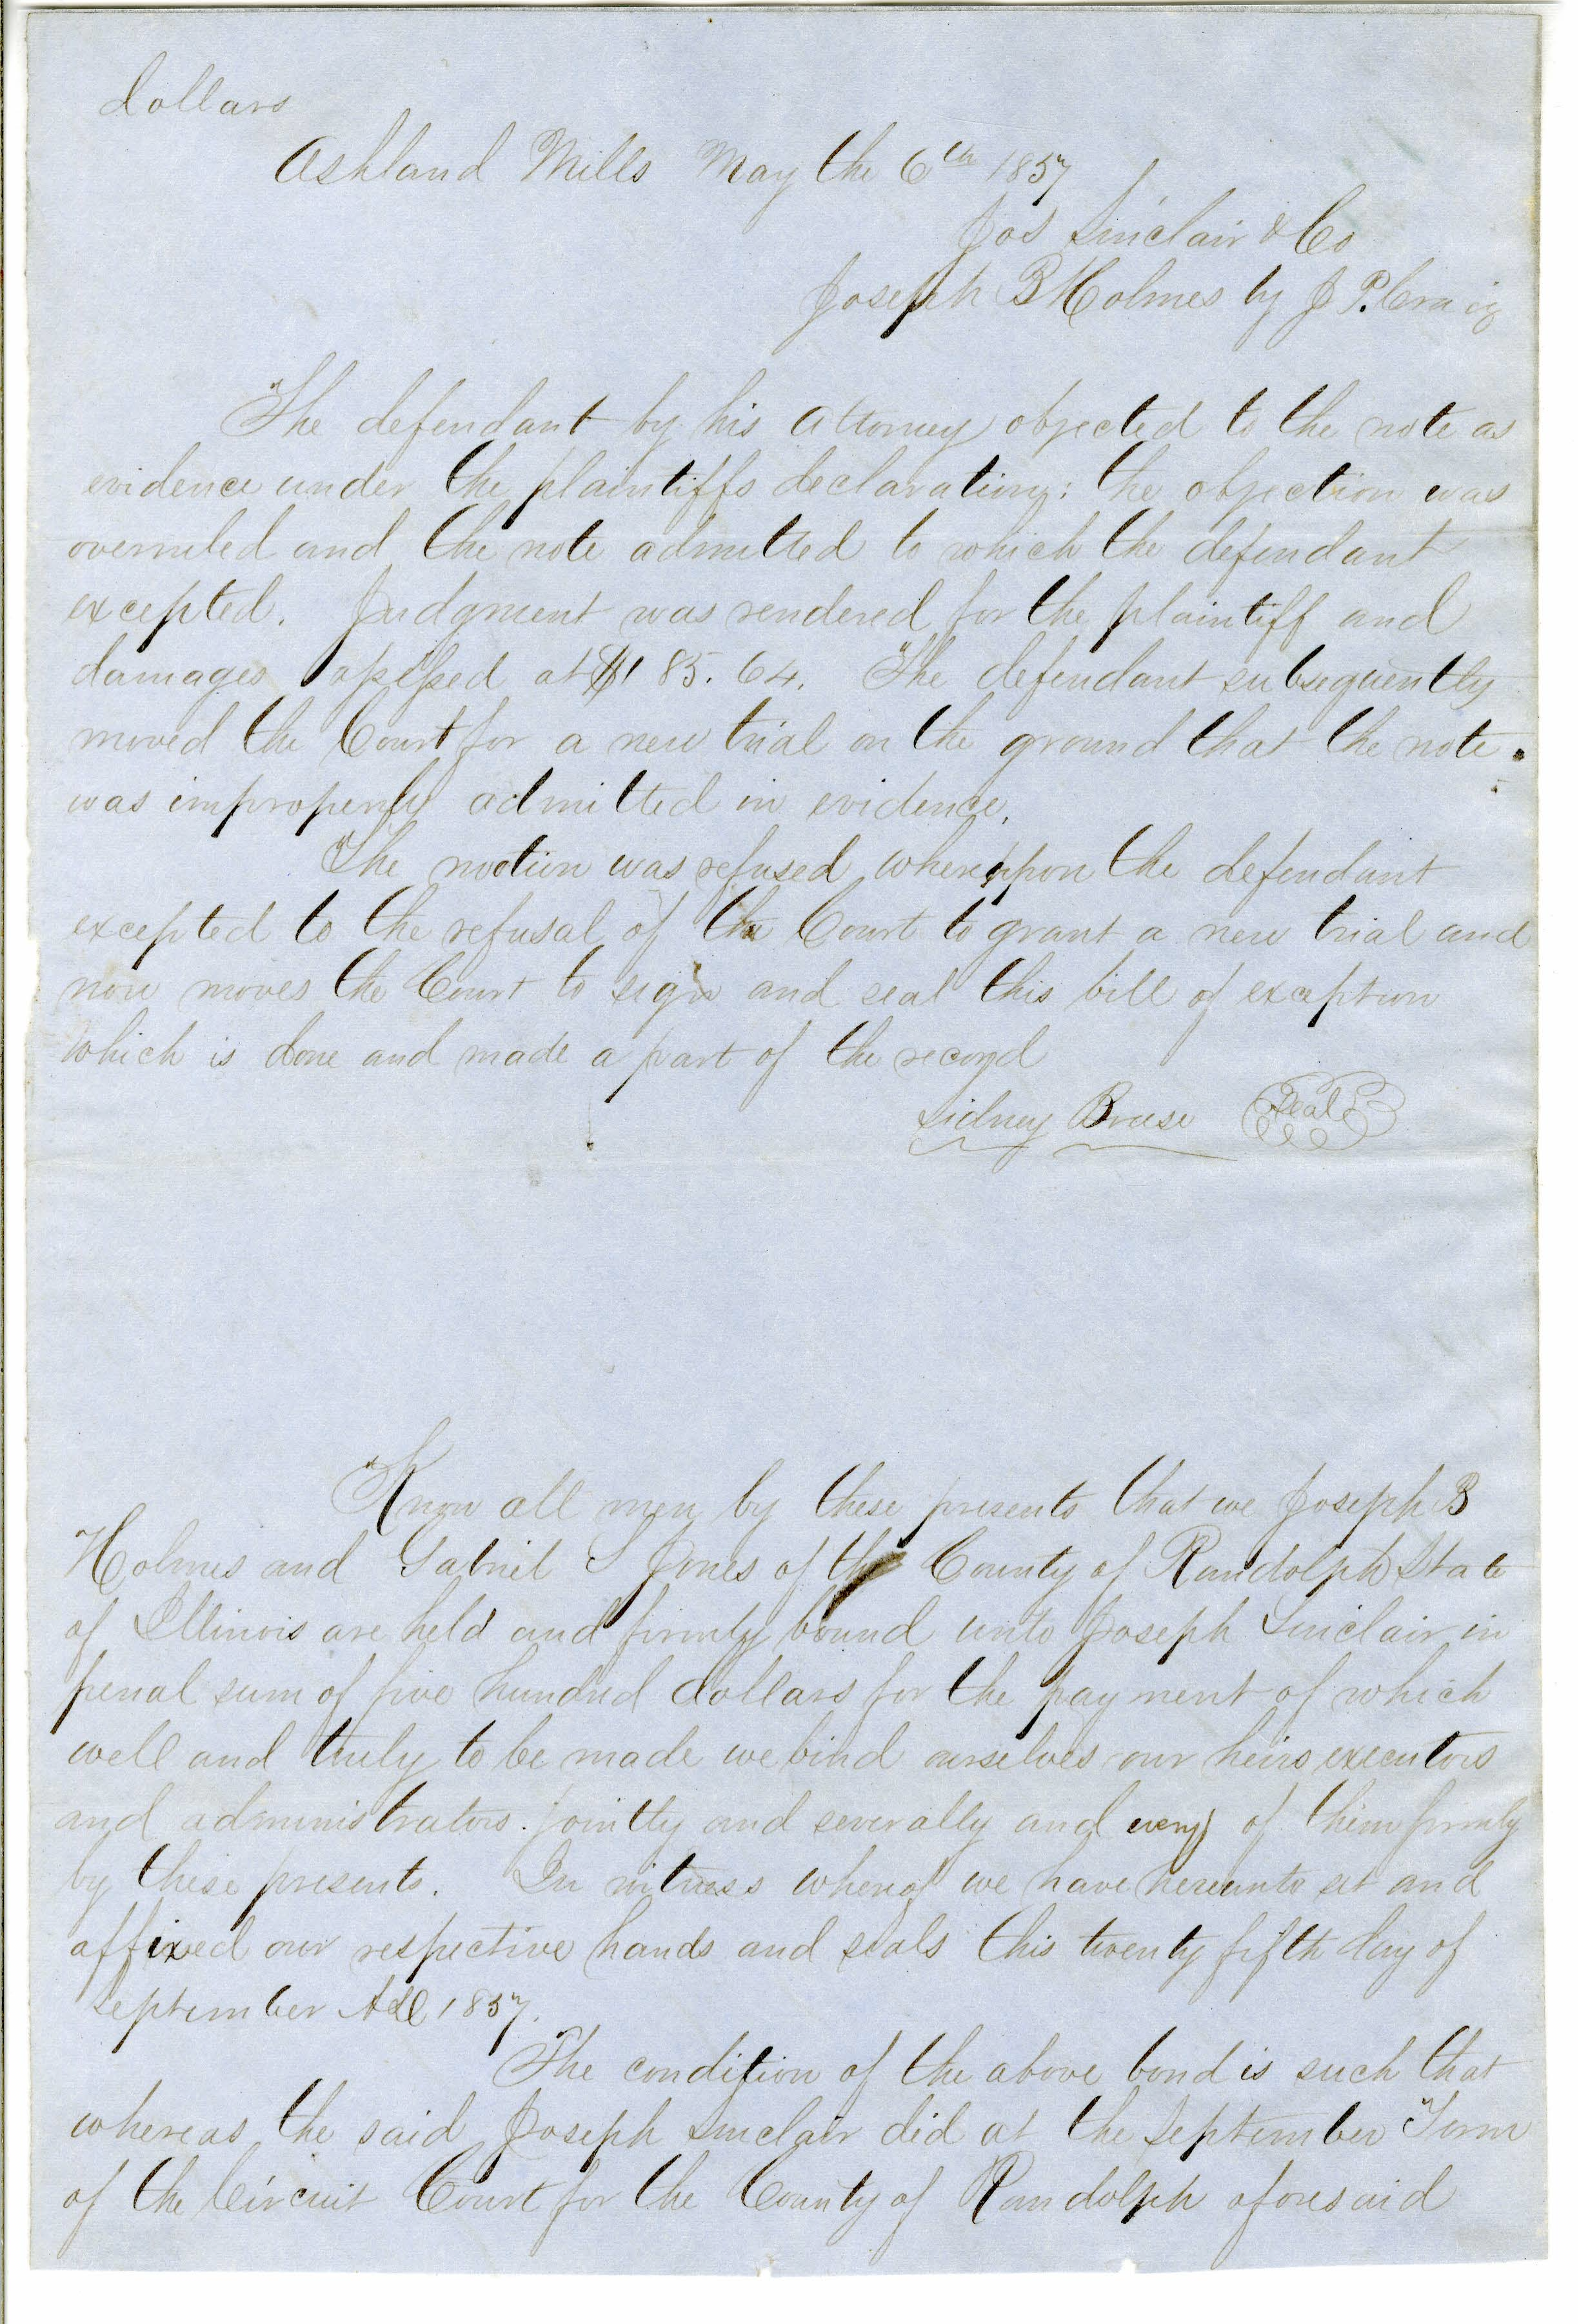 dollars
Ashland Mills May the 6th 1857
Jos Sinclair & Co
Joseph B Holmes by J P. Craig
The defendant by his attorney objected to the note as
evidence under the plaintiffs declaration; the objection was
overruled and the note admitted to which the defendant
excepted. Judgment was rendered for the plaintiff and
damages assessed at $185.64. The defendant subsequently
moved the Court for a new trial on the ground that the note
was improperly admitted in evidence.
The motion was refused whereupon the defendant
excepted to the refusal of the Court to grant a new trial and
now moves the Court to sign and seal this bill of exception
which is done and made a part of the record
Sidney Breese Seal
Know all men by these presents that we Joseph B
Holmes and Gabriel S Jones of the County of Randolph State
of Illinois are held and firmly bound unto Joseph Sinclair in
penal sum of five hundred dollars for the payment of which
well and truly to be made we bind ourselves our heirs executors
and administrators jointly and severally and every of them firmly
by these presents. In witness whereof we have hereunto set and
affixed our respective hands and seals this twenty fifth day of
September AD 1857.
The condition of the above bond is such that
whereas the said Joseph Sinclair did at the September Term
of the Circuit Court for the County of Randolph aforesaid